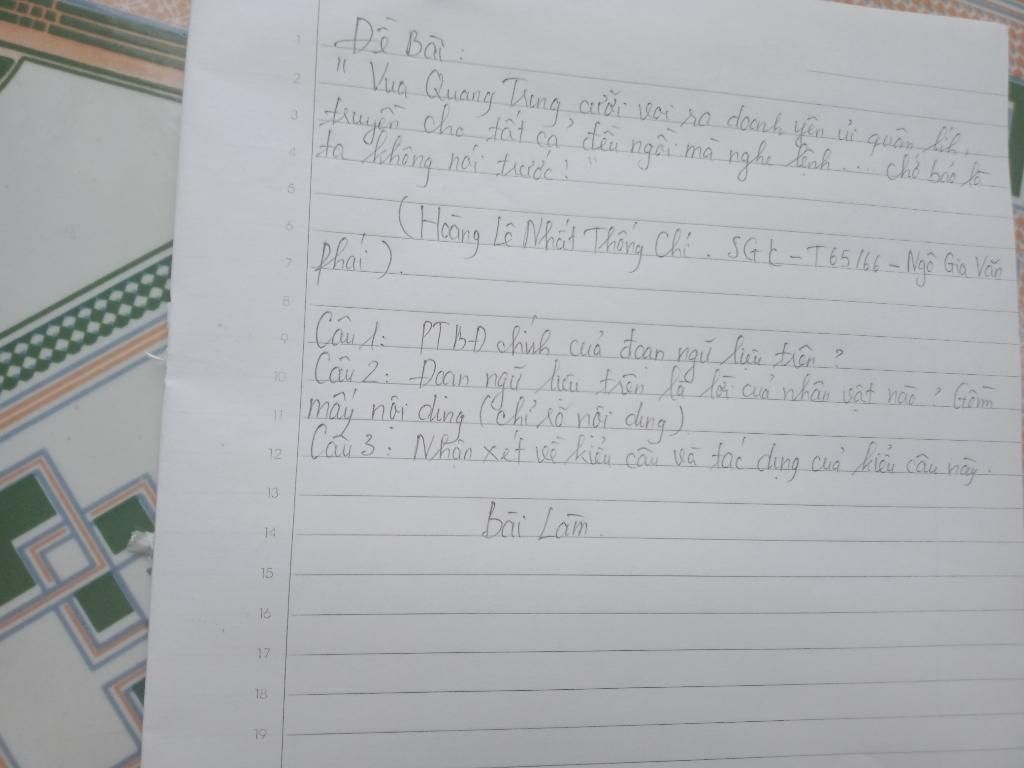 Đề Bài:
" Vua Quang Trung cưỡi voi ra doanh yên ủi quân lính,
truyền cho tất cả đều ngồi mà nghe lệnh.... chớ bảo là
ta không nói trước!"
(Hoàng Lê Nhất Thống Chí. SGK - T65/66 - Ngô Gia Văn
Phái).
Câu 1: PTBĐ chính của đoạn ngữ liệu trên?
Câu 2: Đoạn ngữ liệu trên là lời của nhân vật nào? Gồm
mấy nội dùng (chỉ rõ nội dung)
Câu 3: Nhận xét về kiểu câu và tác dụng của kiểu câu này.
Bài Làm.
1
2
3
4
5
6
7
8
9
10
11
12
13
14
15
16
17
18
19